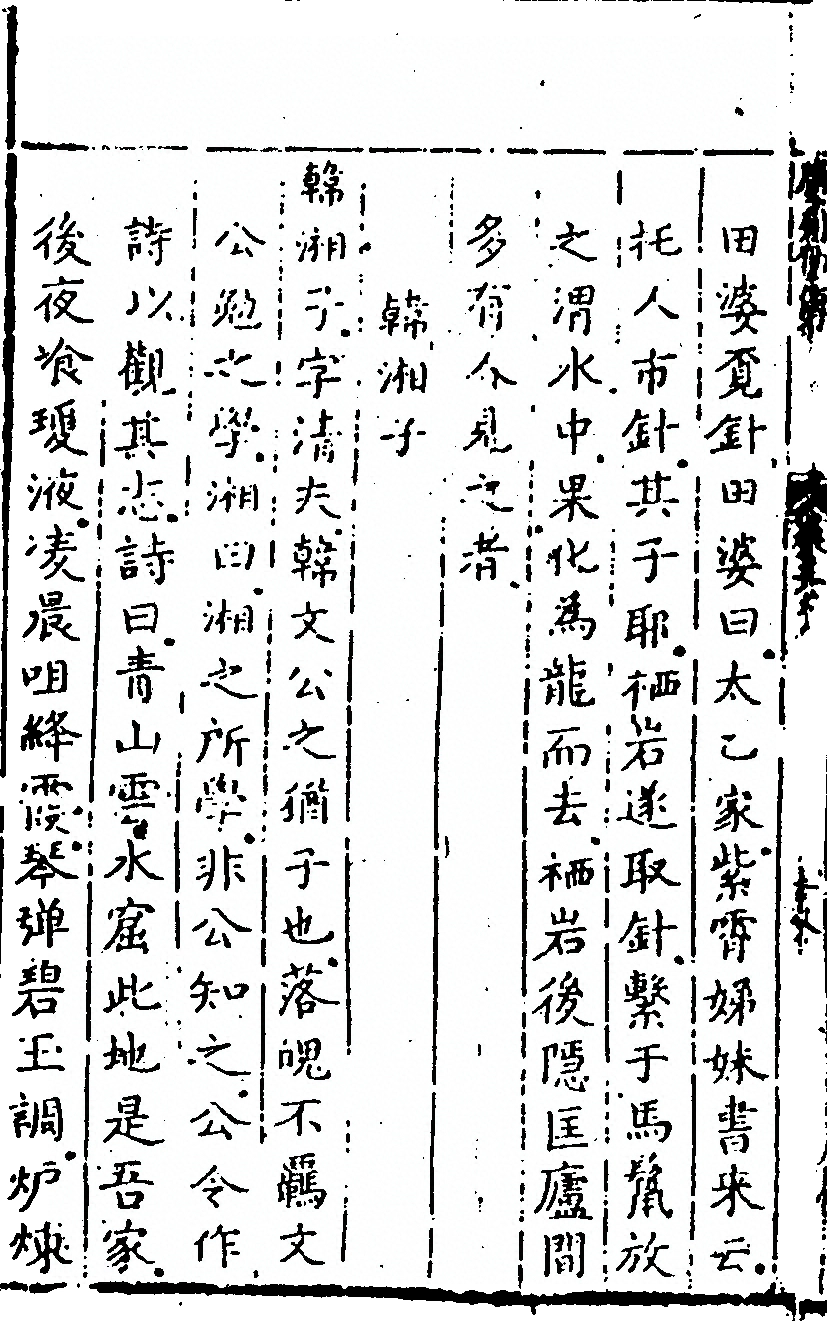 田婆覔針田婆曰太乙家紫霄姊妹書来云
托人市針其于耶栖岩遂取針繫于馬鬣放
之渭水中果化為龍而去栖岩後隱匡廬間
多有人見之者
韓湘子
韓湘子字清夫韓文公之猶子也落魄不羈文
公勉之學湘曰湘之所學非公知之公令作
詩以觀其志詩曰青山雲水窟此地是吾家
後夜飡瓊液凌晨咀絳霞琴彈碧玉調炉煉